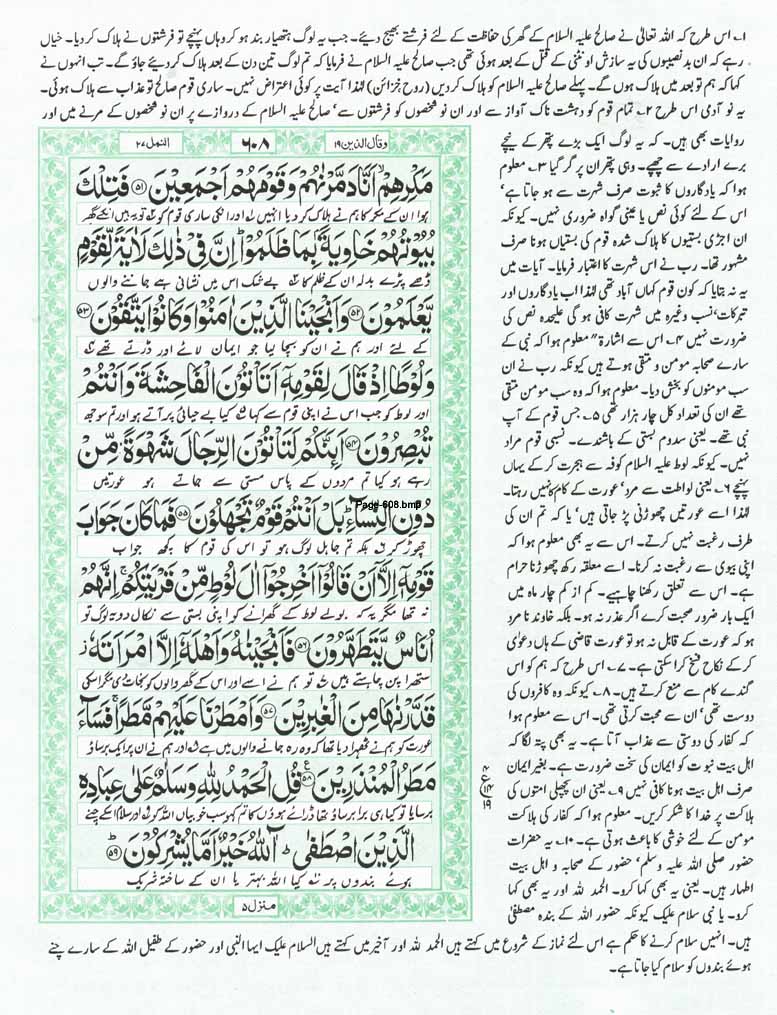 ۱۔ اس طرح کہ اللہ تعالٰی نے صالح علیہ السلام کے گھر کی حفاظت کے لئے فرشتے بھیج دیئے۔ جب یہ لوگ ہتھیار بند ہو کر وہاں پہنچے تو فرشتوں نے ہلاک کر دیا۔ خیال
رہے کہ ان بد نصیبوں کی یہ سازش اونٹنی کے قتل کے بعد ہوئی تھی جب صالح علیہ السلام نے فرمایا کہ تم لوگ تین دن کے بعد ہلاک کر دیئے جاؤ گے۔ تب انہوں نے
کہا کہ ہم تو بعد میں ہلاک ہوں گے۔ پہلے صالح علیہ السلام کو ہلاک کر دیں (روح خزائن) لہٰذا آیت پر کوئی اعتراض نہیں۔ ساری قوم صالح تو عذاب سے ہلاک ہوئی۔
یہ نو آدمی اس طرح ۲۔ تمام قوم کو دہشت ناک آواز سے اور ان نو شخصوں کو فرشتوں سے' صالح علیہ السلام کے دروازے پر ان نو شخصوں کے مرنے میں اور
روایات بھی ہیں۔ کہ یہ لوگ ایک بڑے پتھر کے نیچے
برے ارادے سے چھپے۔ وہی پتھر ان پر گر گیا ۳۔ معلوم
ہوا کہ یادگاروں کا ثبوت صرف شہرت سے ہو جاتا ہے'
اس کے لئے کوئی نص یا عینی گواہ ضروری نہیں۔ کیونکہ
ان اجڑی بستیوں کا ہلاک شدہ قوم کی بستیاں ہونا صرف
مشہور تھا۔ رب نے اس شہرت کا اعتبار فرمایا۔ آیات میں
یہ نہ بتایا کہ کون قوم کہاں آباد تھی لہٰذا اب یادگاروں اور
تبرکات' نسب وغیرہ میں شہرت کافی ہو گی علیحدہ نص کی
ضرورت نہیں ۴۔ اس سے اشارۃً معلوم ہوا کہ نبی کے
سارے صحابہ مومن و متقی ہوتے ہیں کیونکہ رب نے ان
سب مومنوں کو بخش دیا۔ معلوم ہوا کہ وہ سب مومن متقی
تھے ان کی تعداد کل چار ہزار تھی ۵۔ جس قوم کے آپ
نبی تھے۔ یعنی سدوم بستی کے باشندے۔ نسبی قوم مراد
نہیں۔ کیونکہ لوط علیہ السلام کوفہ سے ہجرت کر کے یہاں
پہنچے ۶۔ یعنی لواطت سے مرد' عورت کے کام کا نہیں رہتا۔
لہٰذا اسے عورتیں چھوڑنی پڑ جاتی ہیں' یا کہ تم ان کی
طرف رغبت نہیں کرتے۔ اس سے یہ بھی معلوم ہوا کہ
اپنی بیوی سے رغبت نہ کرنا۔ اسے معلقہ رکھ چھوڑنا حرام
ہے۔ اس سے تعلق رکھنا چاہیے۔ کم از کم چار ماہ میں
ایک بار ضرور صحبت کرے اگر عذر نہ ہو۔ بلکہ خاوند نامرد
ہو کہ عورت کے قابل نہ ہو تو عورت قاضی کے ہاں دعوٰی
کر کے نکاح فسخ کرا سکتی ہے۔ ۷۔ اس طرح کہ ہم کو اس
گندے کام سے منع کرتے ہیں۔ ۸۔ کیونکہ وہ کافروں کی
دوست تھی' ان سے محبت کرتی تھی۔ اس سے معلوم ہوا
کہ کفار کی دوستی سے عذاب آتا ہے۔ یہ بھی پتہ لگا کہ
اہل بیت نبوت کو ایمان کی سخت ضرورت ہے۔ بغیر ایمان
صرف اہل بیت ہونا کافی نہیں ۹۔ یعنی ان پچھلی امتوں کی
ہلاکت پر خدا کا شکر کریں۔ معلوم ہوا کہ کفار کی ہلاکت
مومن کے لئے خوشی کا باعث ہوتی ہے۔ ۱۰۔ یہ حضرات
حضور صلی اللہ علیہ وسلم' حضور کے صحابہ و اہل بیت
اطہار ہیں۔ یعنی یہ بھی کہا کرو۔ الحمد للہ اور یہ بھی کہا
کرو۔ یا نبی سلام علیک کیونکہ حضور اللہ کے بندہ مصطفیٰ
وقال الذین ۱۹
۶۰۸
النمل ۲۷
مَكْرِهِمْ اَنَّا دَمَّرْنٰهُمْ وَقَوْمَهُمْ اَجْمَعِيْنَ ﴿۵۱﴾ فَتِلْكَ
ہوا ان کے مکر کا ہم نے ہلاک کر دیا انہیں اور انکی ساری قوم کو تو یہ ہیں انکے گھر
بُيُوْتُهُمْ خَاوِيَةًۢ بِمَا ظَلَمُوْا ؕ اِنَّ فِيْ ذٰلِكَ لَاٰيَةً لِّقَوْمٍ
ڈھے پڑے بدلہ ان کے ظلم کا بے شک اس میں نشانی ہے جاننے والوں
يَّعْلَمُوْنَ ﴿۵۲﴾ وَاَنْجَيْنَا الَّذِيْنَ اٰمَنُوْا وَكَانُوْا يَتَّقُوْنَ ﴿۵۳﴾
کے لئے اور ہم نے ان کو بچا لیا جو ایمان لائے اور ڈرتے تھے
وَلُوْطًا اِذْ قَالَ لِقَوْمِهٖٓ اَتَاْتُوْنَ الْفَاحِشَةَ وَاَنْتُمْ
اور لوط کو جب اس نے اپنی قوم سے کہا کیا بے حیائی پر آتے ہو اور تم سوجھ
تُبْصِرُوْنَ ﴿۵۴﴾ اَىِٕنَّكُمْ لَتَاْتُوْنَ الرِّجَالَ شَهْوَةً مِّنْ
رہے ہو کیا تم مردوں کے پاس مستی سے جاتے ہو عورتیں
دُوْنِ النِّسَآءِ ؕ بَلْ اَنْتُمْ قَوْمٌ تَجْهَلُوْنَ ﴿۵۵﴾ فَمَا كَانَ جَوَابَ
Page-608.bmp
چھوڑ کر بلکہ تم جاہل لوگ ہو تو اس کی قوم کا کچھ جواب
قَوْمِهٖٓ اِلَّآ اَنْ قَالُوْٓا اَخْرِجُوْٓا اٰلَ لُوْطٍ مِّنْ قَرْيَتِكُمْ ۚ اِنَّهُمْ
نہ تھا مگر یہ کہ بولے لوط کے گھرانے کو اپنی بستی سے نکال دو یہ لوگ تو
اُنَاسٌ يَّتَطَهَّرُوْنَ ﴿۵۶﴾ فَاَنْجَيْنٰهُ وَاَهْلَهٗٓ اِلَّا امْرَاَتَهٗ ز
ستھرا پن چاہتے ہیں تو ہم نے اسے اور اس کے گھر والوں کو نجات دی مگر اسکی
قَدَّرْنٰهَا مِنَ الْغٰبِرِيْنَ ﴿۵۷﴾ وَاَمْطَرْنَا عَلَيْهِمْ مَّطَرًا ۚ فَسَآءَ
عورت کو ہم نے ٹھہرا دیا تھا کہ وہ رہ جانے والوں میں ہے اور ہم نے ان پر ایک برساؤ
مَطَرُ الْمُنْذَرِيْنَ ﴿۵۸﴾ قُلِ الْحَمْدُ لِلّٰهِ وَسَلٰمٌ عَلٰى عِبَادِهِ
برسایا تو کیا ہی برا برساؤ تھا ڈرائے ہوؤں کا تم کہو سب خوبیاں اللہ کو اور سلام اسکے چنے
الَّذِيْنَ اصْطَفٰى ؕ آٰللّٰهُ خَيْرٌ اَمَّا يُشْرِكُوْنَ ﴿۵۹﴾
ہوئے بندوں پر کیا اللہ بہتر یا ان کے ساختہ شریک
منزل ۵
ہیں۔ انہیں سلام کرنے کا حکم ہے اس لئے نماز کے شروع میں کہتے ہیں الحمد للہ اور آخیر میں کہتے ہیں السلام علیک ایہا النبی اور حضور کے طفیل اللہ کے سارے چنے
ہوئے بندوں کو سلام کیا جاتا ہے۔